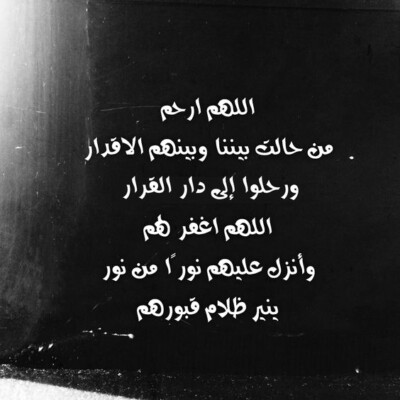 اللهم ارحم
من حالت بيننا وبينهم الاقدار .
ورحلوا إلى دار القرار
اللهم اغفر لهم
وأنزل عليهم نور ًا من نور
ينير ظلام قبورهم